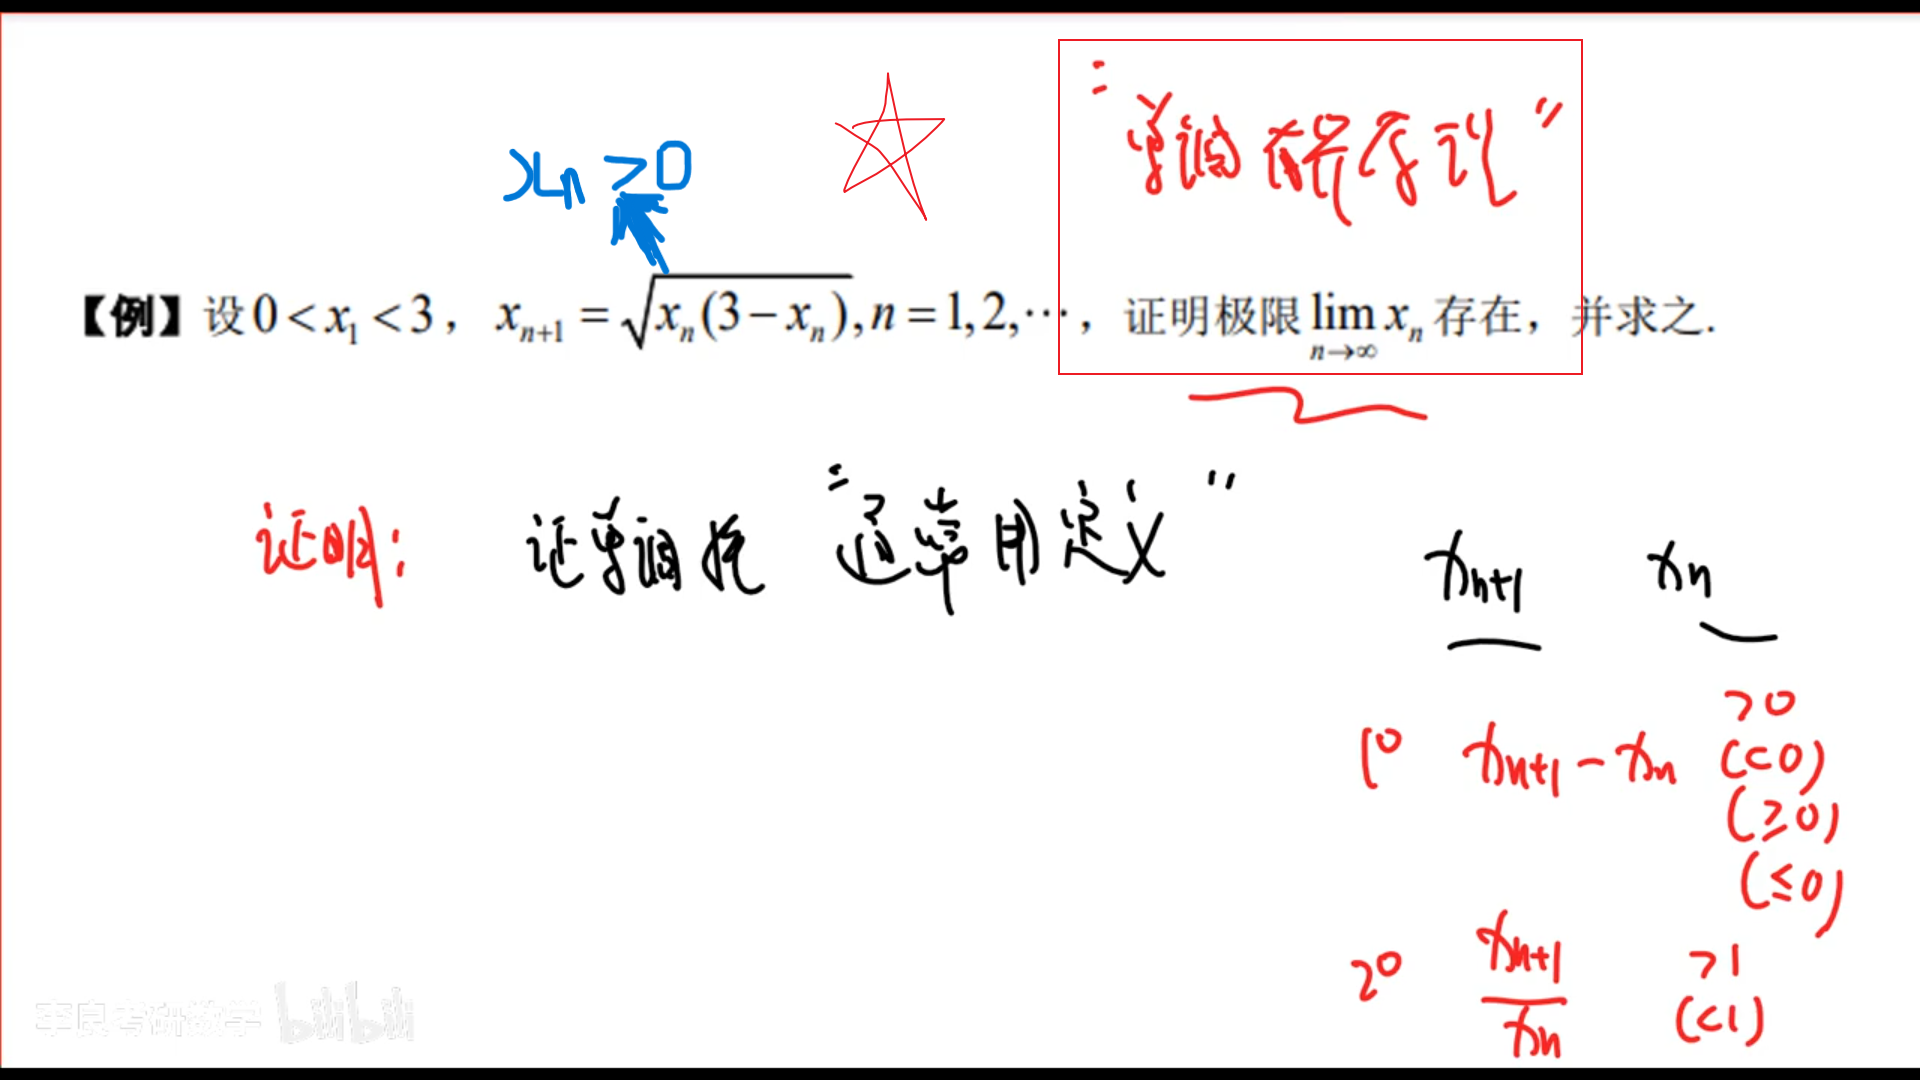 "单调有界准则"
xₙ ≥0
【例】设 0 < x₁ < 3，xₙ₊₁ = √(xₙ(3 − xₙ)), n = 1, 2, ⋯，证明极限 lim_{n→∞} xₙ 存在，并求之.
证明： 证单调性 "通常用定义"
xₙ₊₁ xₙ
1° xₙ₊₁ − xₙ >0
(<0)
(≥0)
(≤0)
2° xₙ₊₁/xₙ >1
(<1)
李良考研数学 bilibili